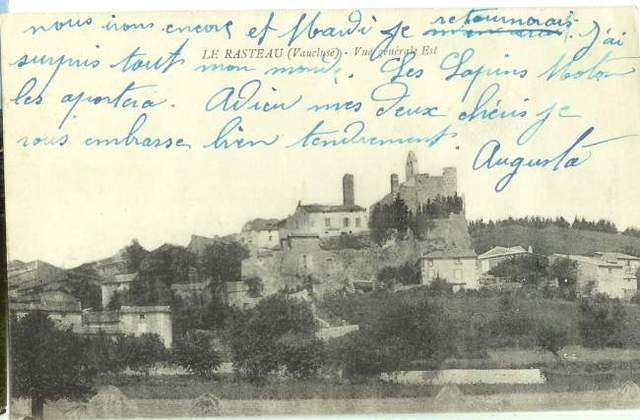 nous irons encore et Mardi je retournerais. J'ai
LE RASTEAU (Vaucluse) - Vue générale Est
surpris tout mon monde. Les Lapins Moton
les aportera. Adieu mes deux chéris je
vous embrasse bien tendrement.
Augusta